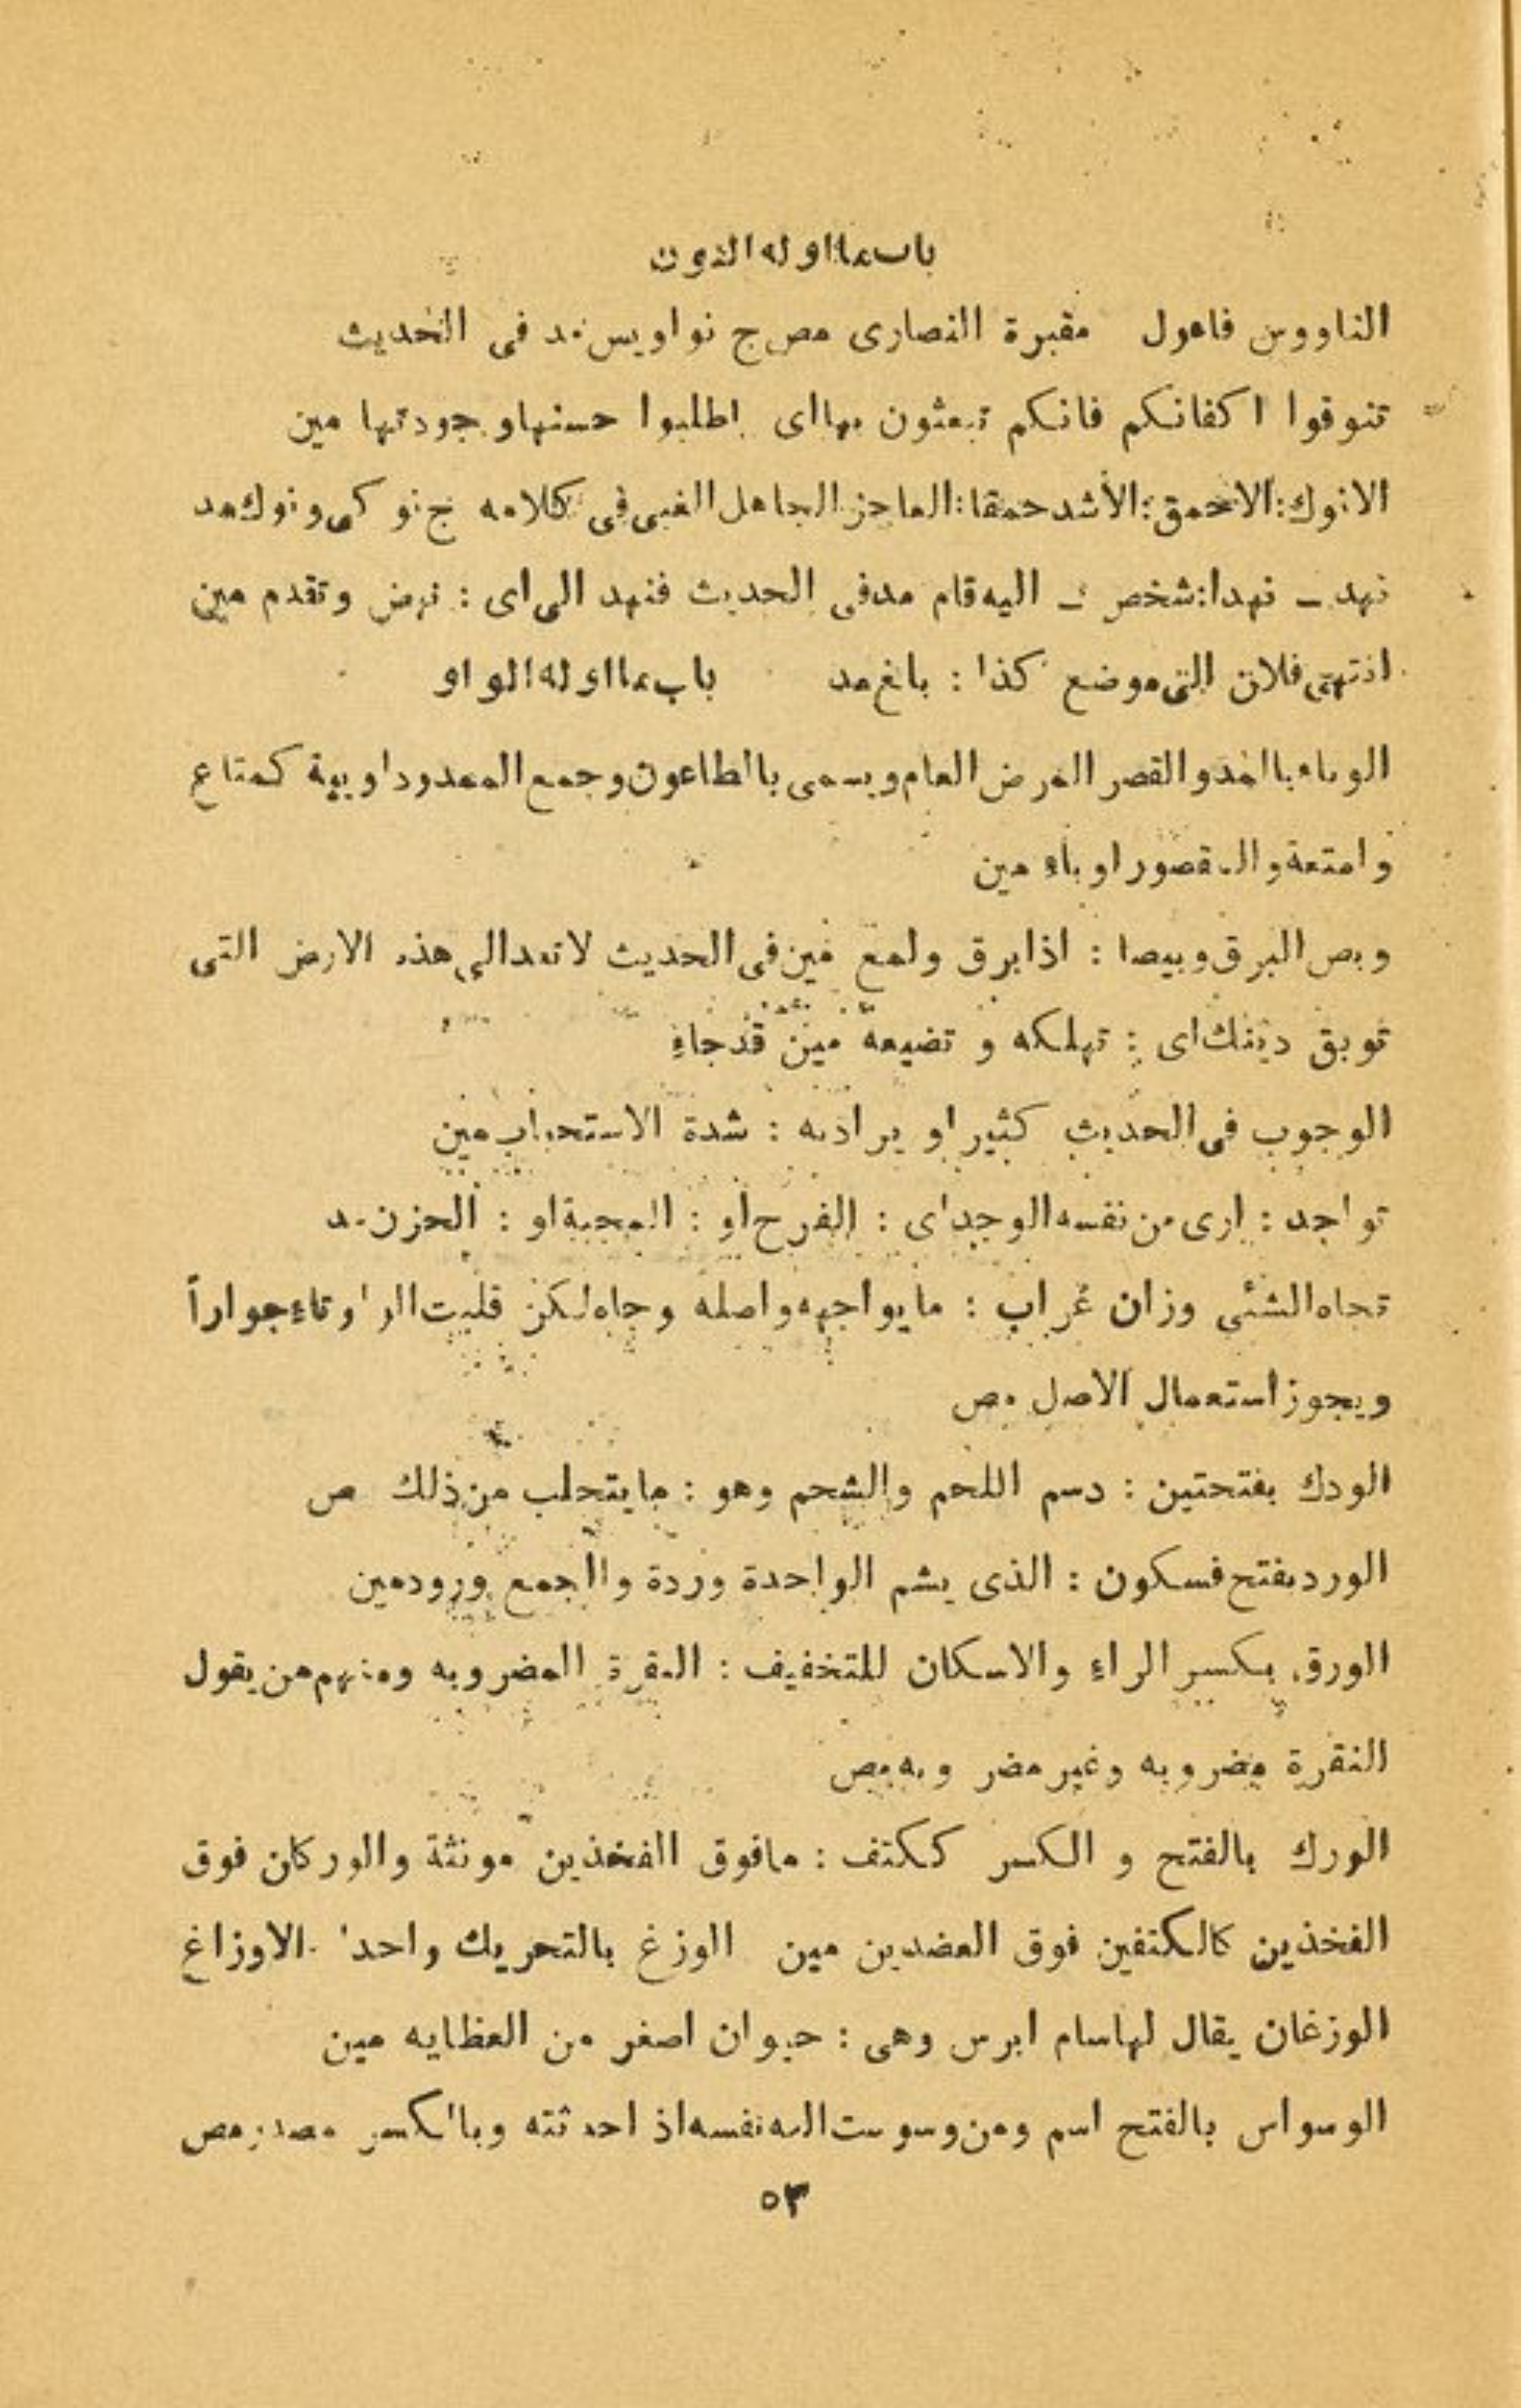 باب ما اوله النون
الناووس فاعول مقبرة النصارى مص ج نواويس مد فى الحديث
تنوقوا اكفانكم فانكم تبعثون بها اى اطلبوا حسنها و جودتها مين
الانوك : الاحمق : الأشد حمقا : العاجز الجاهل الغبى فى كلامه ج نوكى و نوك مد
نهد ـ نهدا : شخص ـ اليه قام مد فى الحديث فنهد الى اى : نهض و تقدم مين
انتهى فلان الى موضع كذا : بلغ مد باب ما اوله الواو
الوباء بالمد و القصر المرض العام و يسمى بالطاعون و جمع الممدود اوبية كمتاع
و امتعة و المقصور اوباء مين
وبص البرق وبيصا : اذا برق و لمع مين فى الحديث لا تعد الى هذه الارض التى
توبق دينك اى : تهلكه و تضيعه مين قد جاء
الوجوب فى الحديث كثيرا و يراد به : شدة الاستحباب مين
تواجد : ارى من نفسه الوجد اى : الفرح او : المحبة او : الحزن مد
تجاه الشئى وزان غراب : ما يواجهه و اصله وجاه لكن قلبت الواو تاء جوازاً
ويجوز استعمال الاصل مص
الودك بفتحتين : دسم اللحم والشحم وهو : ما يتحلب من ذلك ص
الورد بفتح فسكون : الذى يشم الواحدة وردة والجمع ورود مين
الورق بكسر الراء والاسكان للتخفيف : النقرة المضروبه ومنهم من يقول
النقرة مضروبه وغير مضروبه مص
الورك بالفتح و الكسر ككتف : مافوق الفخذين مونثة والوركان فوق
الفخذين كالكتفين فوق العضدين مين الوزغ بالتحريك واحد الاوزاغ
الوزغان يقال لها سام ابرس وهى : حيوان اصغر من العظايه مين
الوسواس بالفتح اسم ومن وسوست اليه نفسه اذ احدثته وبالكسر مصدر مص
٥٣